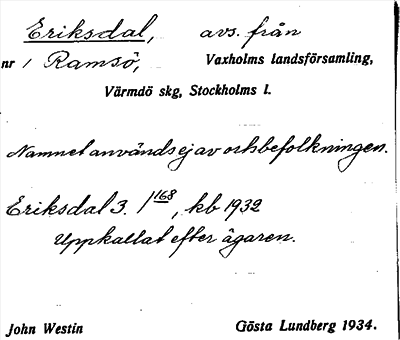 Eriksdal, avs. från
nr 1 Ramsö, Vaxholms landsförsamling,
Värmdö skg, Stockholms l.
Namnet användes ej av ortsbefolkningen.
Eriksdal 3. 1/168, kb 1932
Uppkallat efter ägaren.
John Westin Gösta Lundberg 1934.